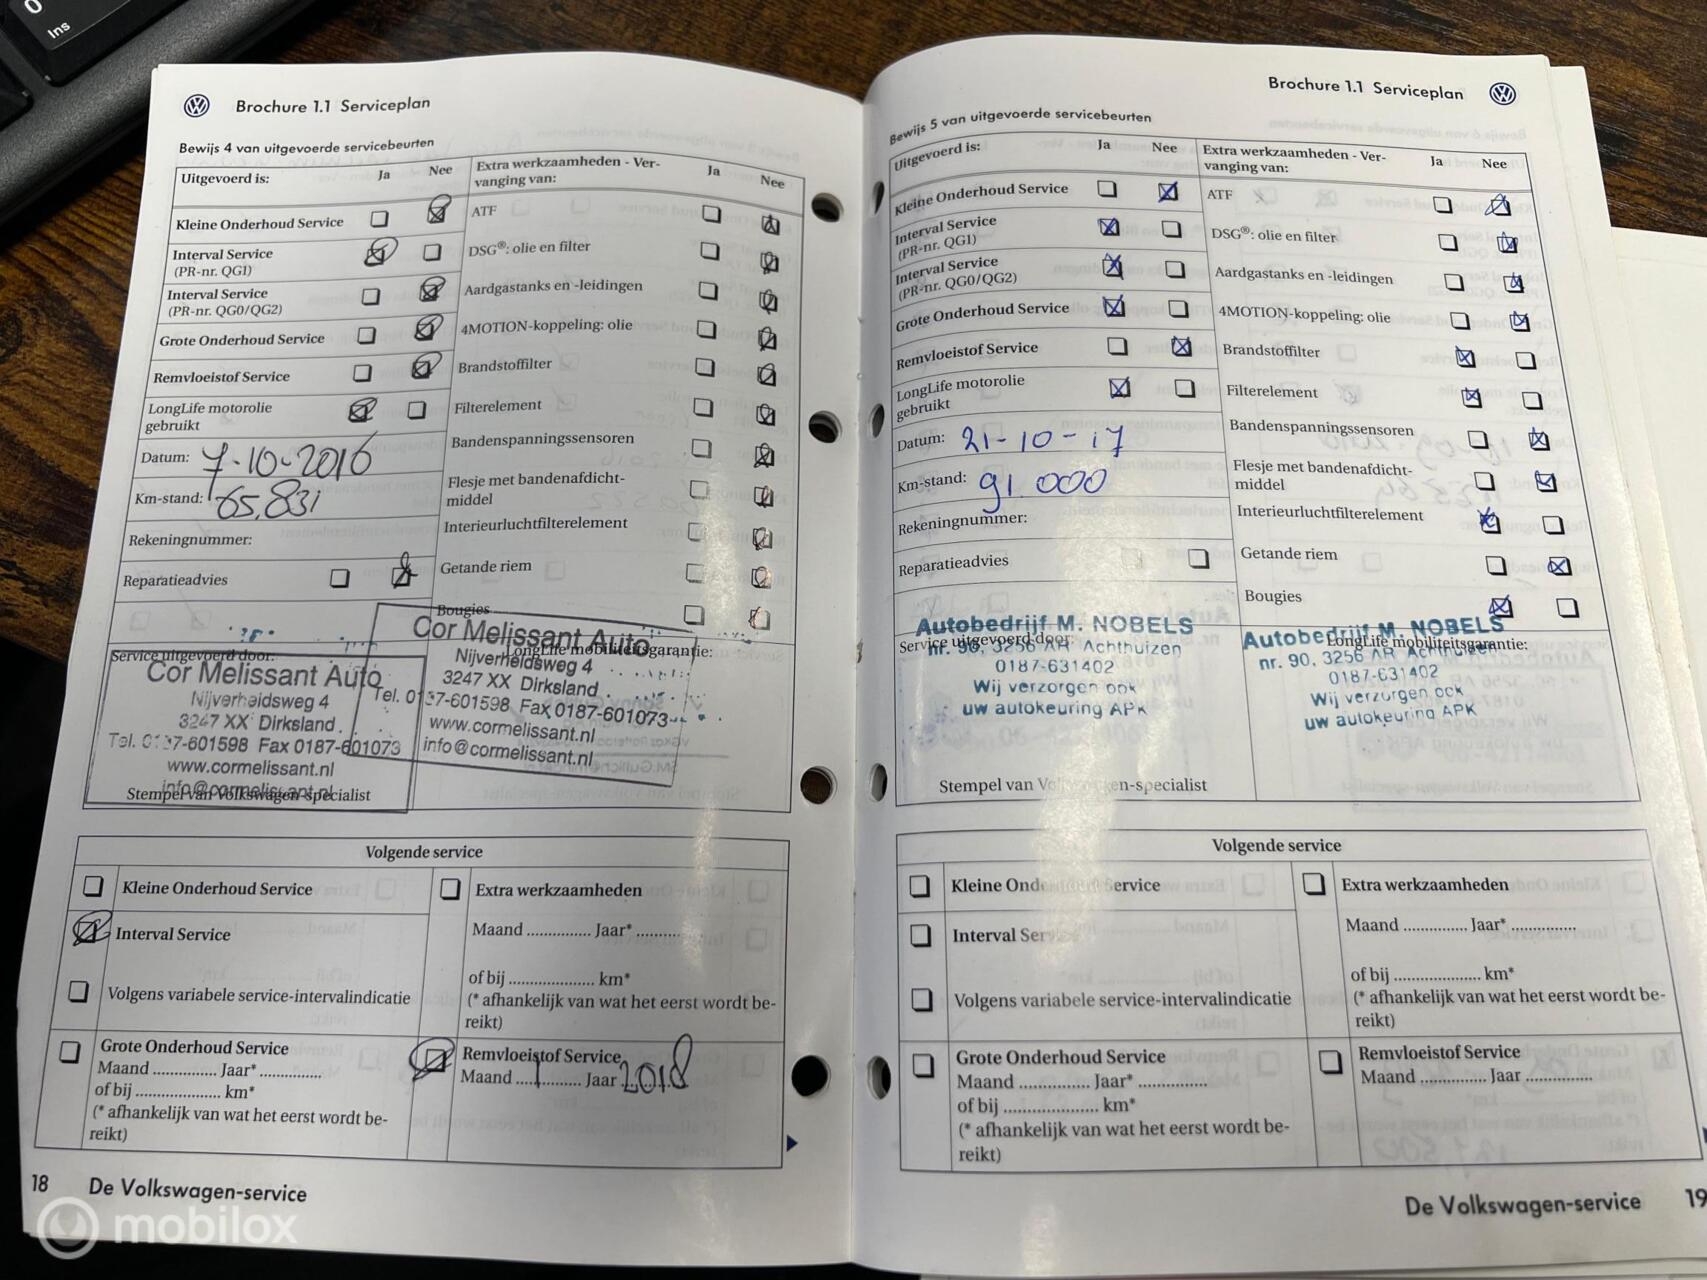 0
Ins
Brochure 1.1 Serviceplan
Bewijs 4 van uitgevoerde servicebeurten
Uitgevoerd is: Ja Nee
Kleine Onderhoud Service
Interval Service
(PR-nr. QG1)
Interval Service
(PR-nr. QG0/QG2)
Grote Onderhoud Service
Remvloeistof Service
LongLife motorolie
gebruikt
Datum: 7-10-2016
Km-stand: 65.831
Rekeningnummer:
Reparatieadvies
Extra werkzaamheden - Ver-
vanging van: Ja Nee
ATF
DSG®: olie en filter
Aardgastanks en -leidingen
4MOTION-koppeling: olie
Brandstoffilter
Filterelement
Bandenspanningssensoren
Flesje met bandenafdicht-
middel
Interieurluchtfilterelement
Getande riem
Bougies
Service uitgevoerd door:
Cor Melissant Auto
Nijverheidsweg 4
3247 XX Dirksland
Tel. 0187-601598 Fax 0187-601073
www.cormelissant.nl
info@cormelissant.nl
Stempel van Volkswagen-specialist
LongLife mobiliteitsgarantie:
Cor Melissant Auto
Nijverheidsweg 4
3247 XX Dirksland
Tel. 0187-601598 Fax 0187-601073
www.cormelissant.nl
info@cormelissant.nl
Volgende service
Kleine Onderhoud Service
Interval Service
Volgens variabele service-intervalindicatie
Grote Onderhoud Service
Maand ............... Jaar* ..............
of bij .................... km*
(* afhankelijk van wat het eerst wordt be-
reikt)
Extra werkzaamheden
Maand ............... Jaar* ..........
of bij ..................... km*
(* afhankelijk van wat het eerst wordt be-
reikt)
Remvloeistof Service
Maand ....1.......... Jaar 2018
18 De Volkswagen-service
mobilox
Brochure 1.1 Serviceplan
Bewijs 5 van uitgevoerde servicebeurten
Uitgevoerd is: Ja Nee
Kleine Onderhoud Service
Interval Service
(PR-nr. QG1)
Interval Service
(PR-nr. QG0/QG2)
Grote Onderhoud Service
Remvloeistof Service
LongLife motorolie
gebruikt
Datum: 21-10-17
Km-stand: 91.000
Rekeningnummer:
Reparatieadvies
Extra werkzaamheden - Ver-
vanging van: Ja Nee
ATF
DSG®: olie en filter
Aardgastanks en -leidingen
4MOTION-koppeling: olie
Brandstoffilter
Filterelement
Bandenspanningssensoren
Flesje met bandenafdicht-
middel
Interieurluchtfilterelement
Getande riem
Bougies
Service uitgevoerd door:
Autobedrijf M. NOBELS
nr. 90, 3256 AR Achthuizen
0187-631402
Wij verzorgen ook
uw autokeuring APK
Stempel van Volkswagen-specialist
LongLife mobiliteitsgarantie:
Autobedrijf M. NOBELS
nr. 90, 3256 AR Achthuizen
0187-631402
Wij verzorgen ook
uw autokeuring APK
Volgende service
Kleine Onderhoud Service
Interval Service
Volgens variabele service-intervalindicatie
Grote Onderhoud Service
Maand ............... Jaar* ...............
of bij .................... km*
(* afhankelijk van wat het eerst wordt be-
reikt)
Extra werkzaamheden
Maand .............. Jaar* ..............
of bij .................... km*
(* afhankelijk van wat het eerst wordt be-
reikt)
Remvloeistof Service
Maand .............. Jaar ..............
De Volkswagen-service 19